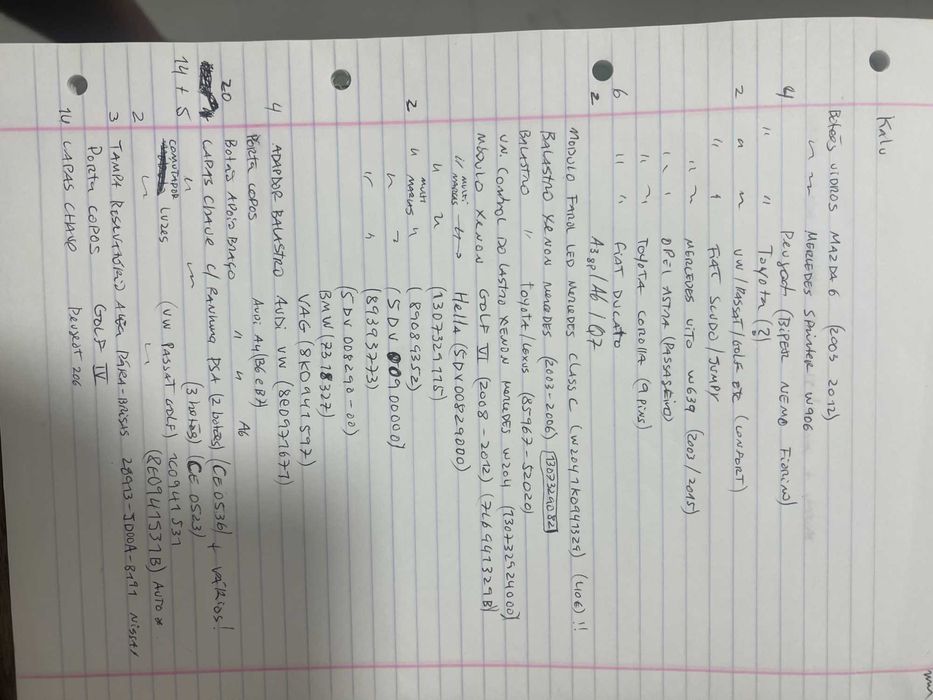 Kalu
Botões VIDROS MAZDA 6 (2003 2012)
" " MERCEDES SPRINTER W906
4 " " Peugeot (BIPER NEMO FIORINO)
" " TOYOTA (?)
2 " " VW/PASSAT/GOLF ETC (CONFORT)
" " FIAT SCUDO/JUMPY
" " MERCEDES VITO W639 (2003/2015)
" " OPEL ASTRA (PASSAGEIRO)
" " TOYOTA COROLLA (9 PINS)
6 " " FIAT DUCATO
2 A3 8P/A6/Q7
MODULO FAROL LED MERCEDES CLASS C (W204 1K0941329) (40€) !!
BALASTRO XENON MERCEDES (2003-2006) 1307329082
BALASTRO " TOYOTA/LEXUS (85967-52020)
UN. CONTROL DO LASTRO XENON MERCEDES W204 (1307329 24000)
MÓDULO XENON GOLF VI (2008-2012) (7L6941329B)
" MULTI MARCAS " Hella (5DV00829000)
" " (1307329115)
2 " MULTI MARCAS " (89089352)
" " (5DV 009 00000)
" " (89393773)
(5DV 008290-00)
BMW (7318327)
VAG (8K0941597)
4 ADAPDOR BALASTRO AUDI VW (8E0971671)
PORTA COPOS AUDI A4 (B6 e B7)
Botão APOIO BRAÇO " " A6
20 CAPAS CHAVE C/ RANHURA PSA (2 botões) (CE0536) + VÁRIOS!
14 + 5 " " (3 botões) (CE 0523)
COMUTADOR LUZES (VW PASSAT GOLF) 1C0941531
2 " " (8E0941531B) AUTO *
3 TAMPA RESERVATÓRIO ÁGUA PÁRA-BRISAS 28913-JD00A-8191 NISSAN
PORTA COPOS GOLF IV
14 CAPAS CHAVE Peugeot 206